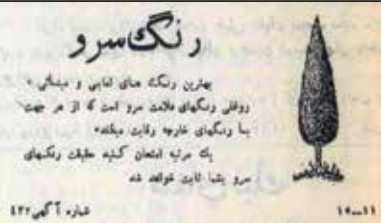 رنگ سرو
بهترین رنگ های لعابی و مینائی
روغنی رنگهای علامت سرو است که از هر جهت
با رنگهای خارجه رقابت میکند
یک مرتبه امتحان کنید حقیقت رنگهای
سرو بشما ثابت خواهد شد
شماره آگهی ۴۲۶
۱۱-۱۵